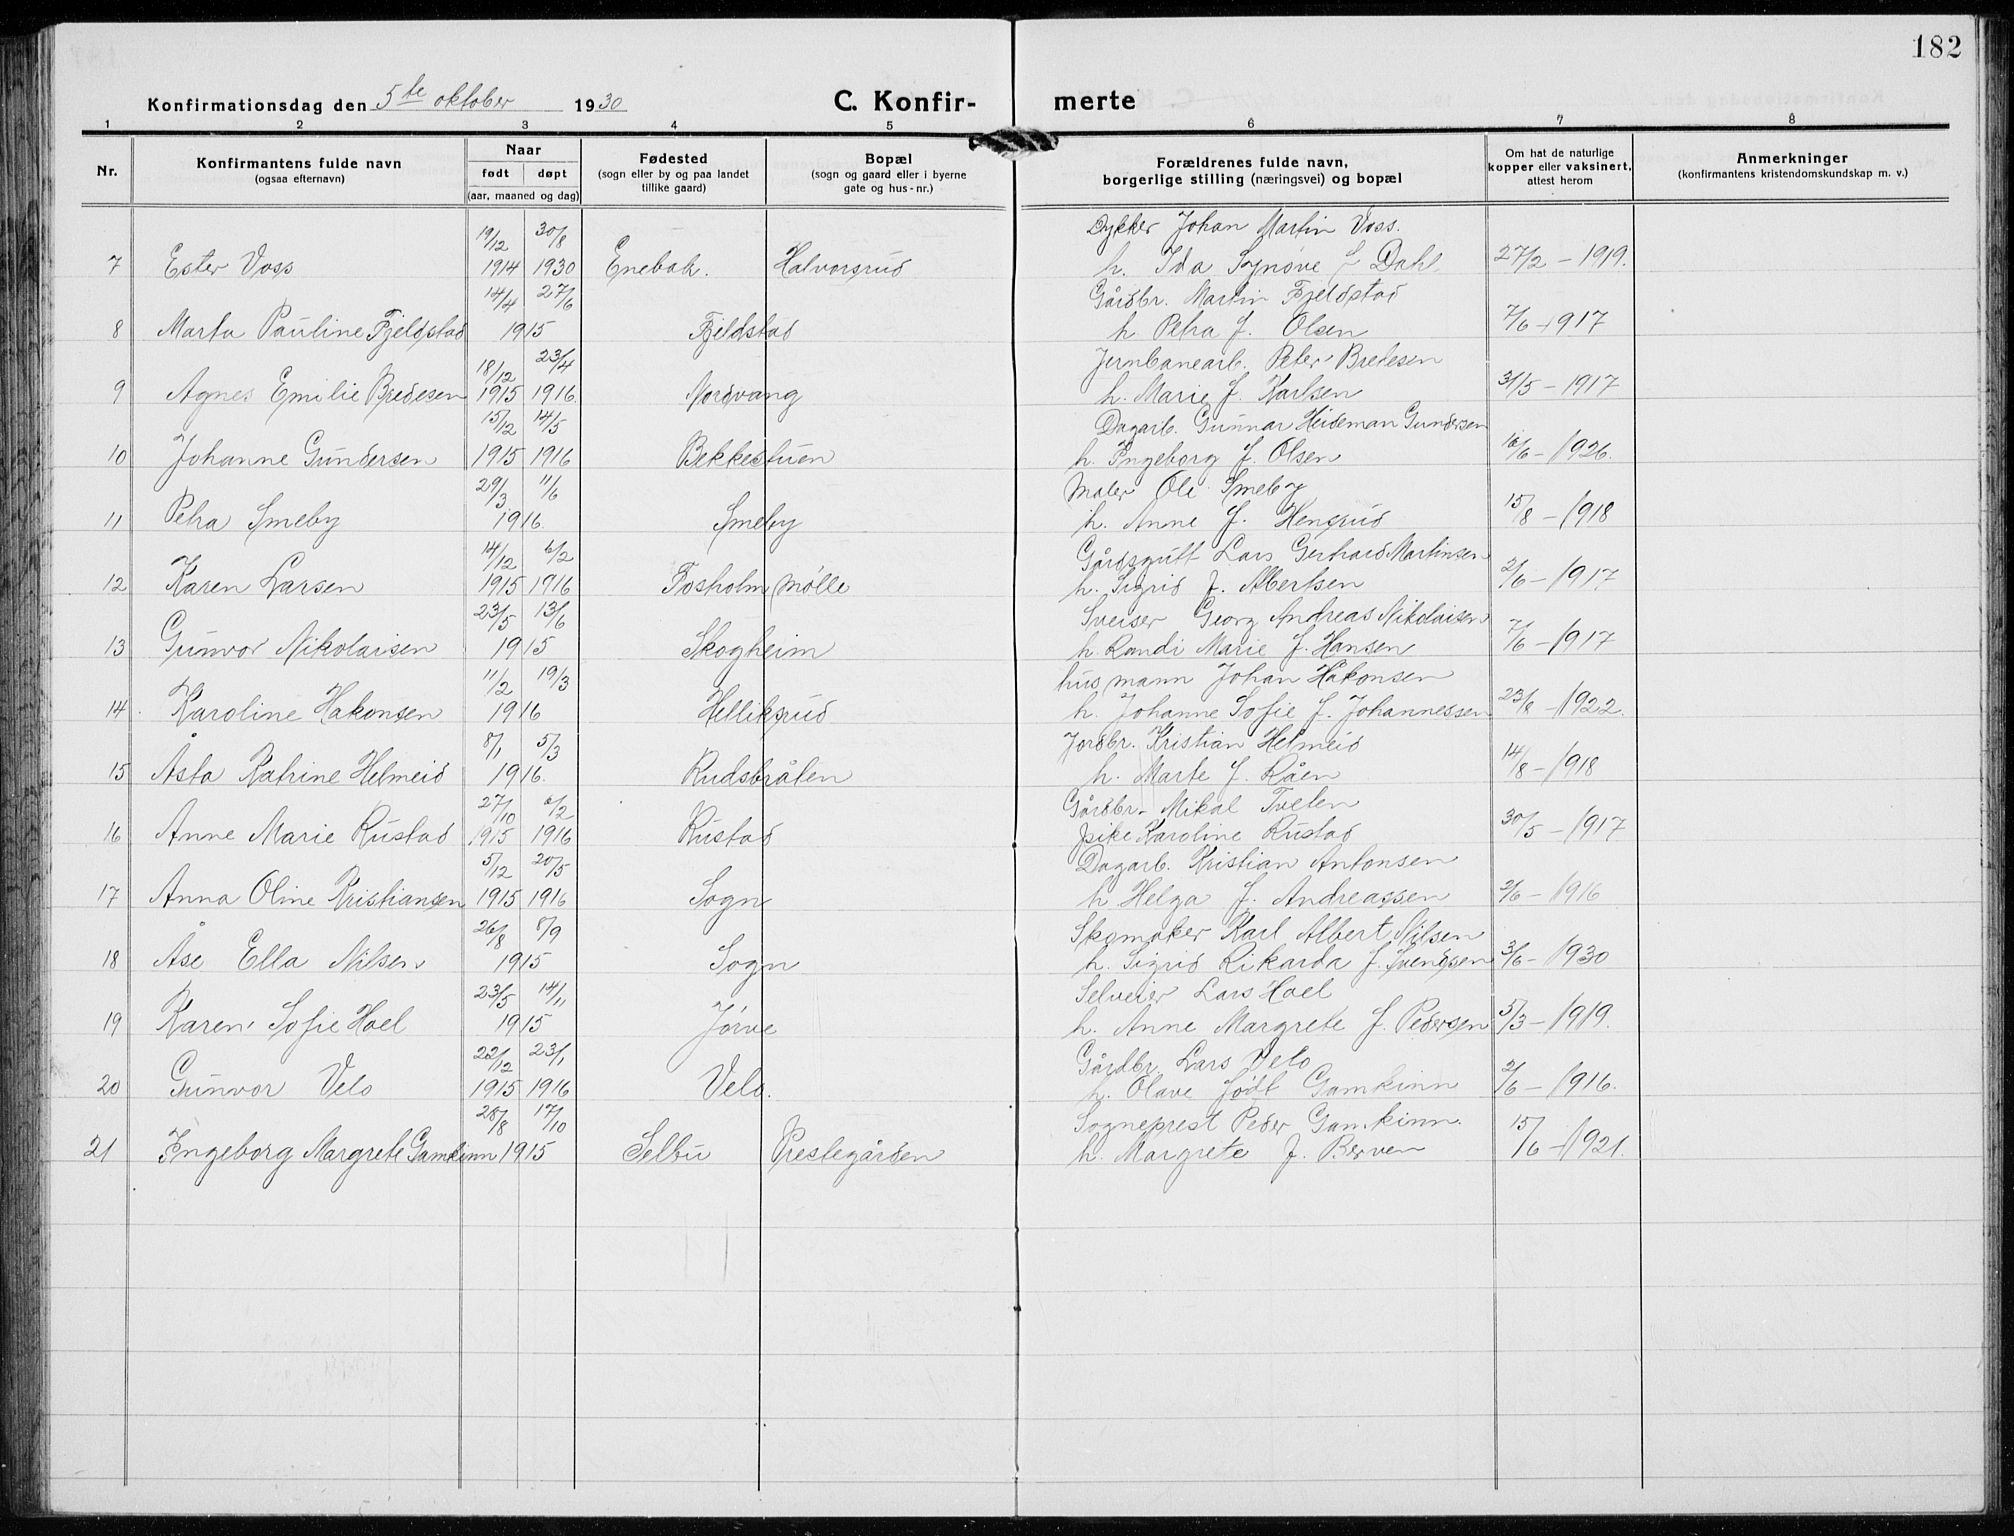 182
Konfirmationsdag den 5te oktober 1930 C. Konfir- merte
1 2 3 4 5 6 7 8
Nr. Konfirmantens fulde navn (ogsaa efternavn) Naar født døpt (aar, maaned og dag) Fødested (sogn eller by og paa landet tillike gaard) Bopæl (sogn og gaard eller i byerne gate og hus-nr.) Forældrenes fulde navn, borgerlige stilling (næringsvei) og bopæl Om hat de naturlige kopper eller vaksinert, attest herom Anmerkninger (konfirmantens kristendomskundskap m. v.)
19/12 30/8 Dykker Johan Martin Voss.
7 Ester Voss 1914 1930 Enebak. Halvorsrud h. Ida Synøve f Dahl 27/2 - 1919.
14/4 27/6 Gårdbr. Martin Fjeldstad
8 Marta Pauline Fjeldstad 1915 Fjeldstad h Petra f. Olsen 7/6 1917
18/12 23/4 Jernbanearb. Peter Bredesen
9 Agnes Emilie Bredesen 1915 1916. Nordvang h. Marie f. Karlsen 31/5 - 1917
15/12 14/5 Dagarb. Gunnar Heideman Gundersen
10 Johanne Gundersen 1915 1916 Bekkestuen h. Ingeborg f. Olsen 16/6 - 1926.
29/3 11/6 Maler Ole Smeby
11 Petra Smeby 1916. Smeby h. Anne f. Hengsrud 15/8 - 1918
14/12 6/2 Gårdsgutt Lars Gerhard Martinsen
12 Karen Larsen 1915 1916 Fosholm mølle h. Sigrid f. Albertsen 2/6 - 1917
23/5 13/6 Sveiser Georg Andreas Nikolaisen
13 Gunvor Nikolaisen 1915 Skogheim h. Randi Marie f. Hansen 7/6 - 1917
11/2 19/3 husmann Johan Håkonsen
14. Karoline Håkonsen 1916 Helliksrud h. Johanne Sofie f. Johannessen 23/8 - 1922.
8/1 5/3 Jordbr. Kristian Helmeid
15 Åsta Katrine Helmeid 1916. Rudsbråten h. Marte f. Råen 14/8 - 1918
27/10 6/2 Gårdbr. Mikal Tveten
16 Anne Marie Rustad 1915 1916 Rustad pike Karoline Rustad 30/5 - 1917
5/12 20/5 Dagarb. Kristian Antonsen
17 Anna Oline Kristiansen 1915 1916 Sogn h Helga f. Andreassen 2/6 - 1916
26/8 8/9 Skomaker Karl Albert Nilsen
18 Åse Ella Nilsen 1915 Sogn h. Sigrid Rikarda f. Svendsen 3/6 - 1930
23/5 14/11 Selveier Lars Hoel
19 Karen Sofie Hoel 1915 Jørve h. Anne Margrete f. Pedersen 5/3 - 1919.
22/12 23/1 Gårdbr. Lars Velo
20 Gunvor Velo 1915 1916 Velo. h. Olave født Gamkinn 2/6 - 1916.
28/8 17/10 Sogneprest Peder Gamkinn.
21 Ingeborg Margrete Gamkinn 1915 Selbu Prestegården h. Margrete f. Berven 15/6 - 1921.